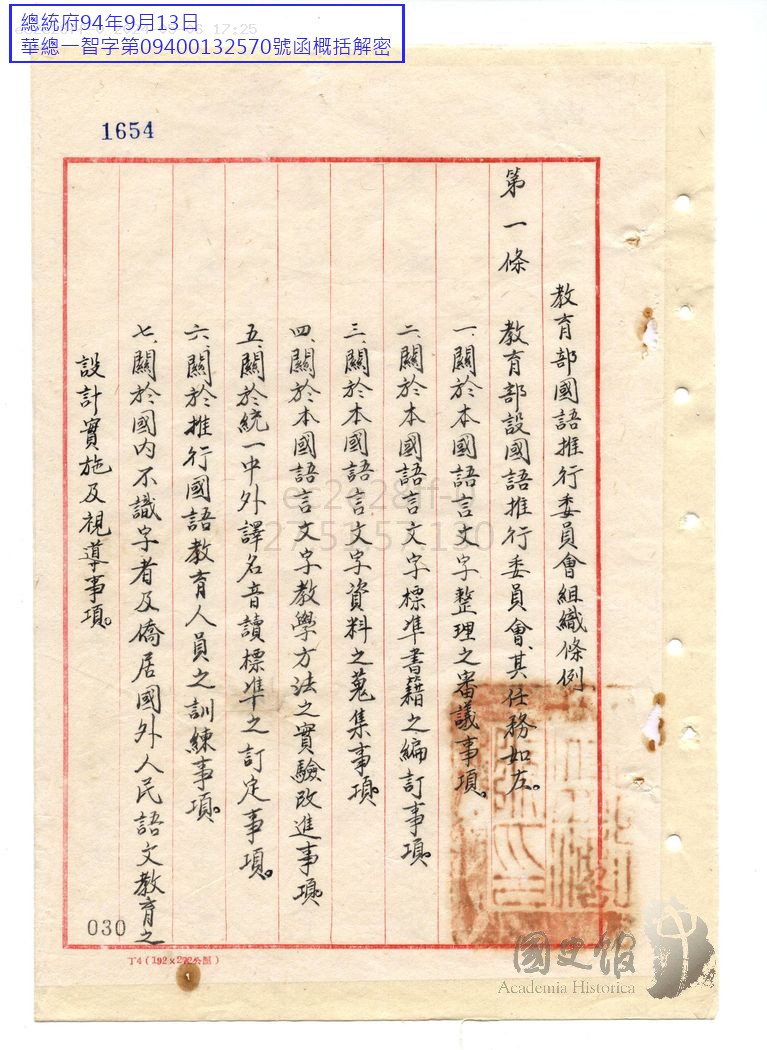 總統府94年9月13日
華總一智字第09400132570號函概括解密
1654
教育部國語推行委員會組織條例
第一條 教育部設國語推行委員會、其任務如左。
一、關於本國語言文字整理之審議事項。
二、關於本國語言文字標準書籍之編訂事項。
三、關於本國語言文字資料之蒐集事項。
四、關於本國語言文字教學方法之實驗改進事項。
五、關於統一中外譯名音讀標準之訂定事項。
六、關於推行國語教育人員之訓練事項。
七、關於國內不識字者及僑居國外人民語文教育之
設計實施及視導事項。
030
T4(192×272公厘)
國史館
Academia Historica